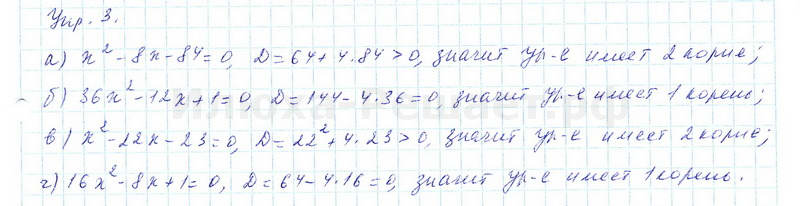 Упр. 3.
а) x² - 8x - 84 = 0, D = 64 + 4·84 > 0, значит ур-е имеет 2 корне;
б) 36x² - 12x + 1 = 0, D = 144 - 4·36 = 0, значит ур-е имеет 1 корень;
Илюха-решает.рф
в) x² - 22x - 23 = 0, D = 22² + 4·23 > 0, значит ур-е имеет 2 корне;
г) 16x² - 8x + 1 = 0, D = 64 - 4·16 = 0, значит ур-е имеет 1 корень.